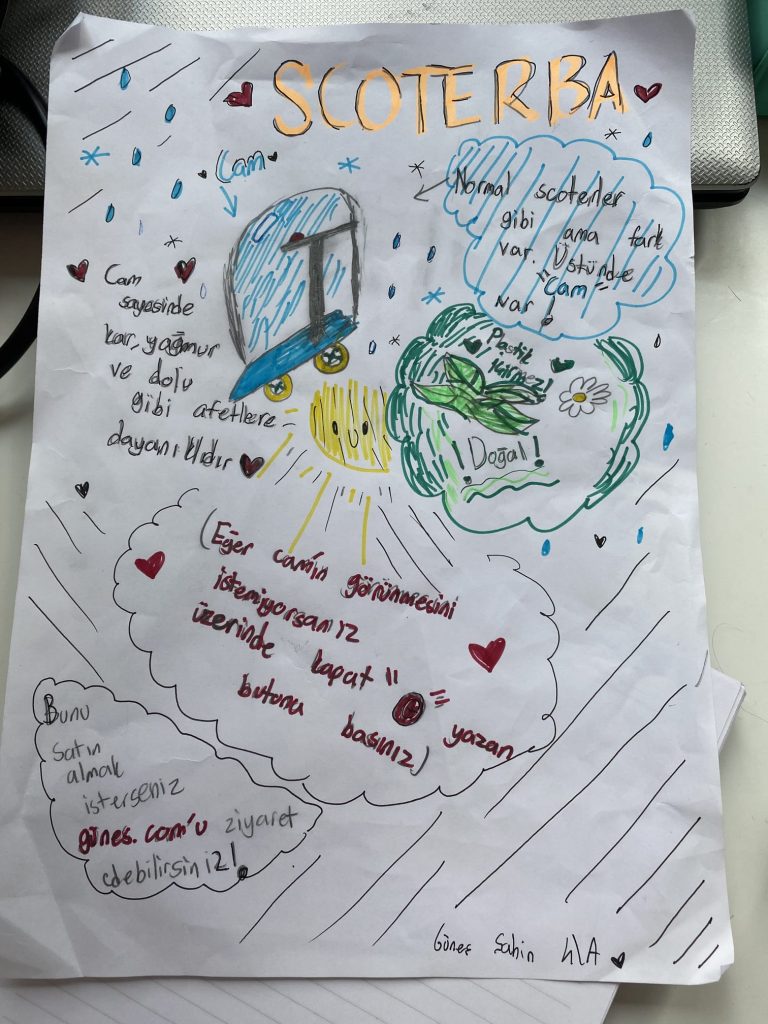 SCOTERBA
Cam
Normal scoterler
gibi ama fark
var. Üstünde
"Cam"
var!
Cam
sayesinde
kar, yağmur
ve dolu
gibi afetlere
dayanıklıdır
Plastik
içermez!
!Doğal!
(Eğer cam'ın görünmesini
istemiyorsanız
üzerinde kapat " " yazan
butonu basınız)
Bunu
satın
almak
isterseniz
güneş.com'u ziyaret
edebilirsiniz!
Güneş Şahin 4/A